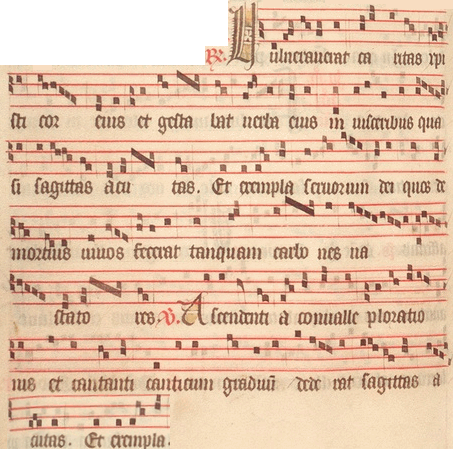 ℟. Vulnerauerat ca ritas xpi
sti cor eius et gesta bat uerba eius in uisceribus qua
si sagittas acu tas. Et exempla seruorum dei quos de
mortuis uiuos fecerat tanquam carbo nes ua
stato res ℣. Ascendenti a conualle ploratio
nis et cantanti canticum graduū dede rat sagittas a
cutas. Et exempla.